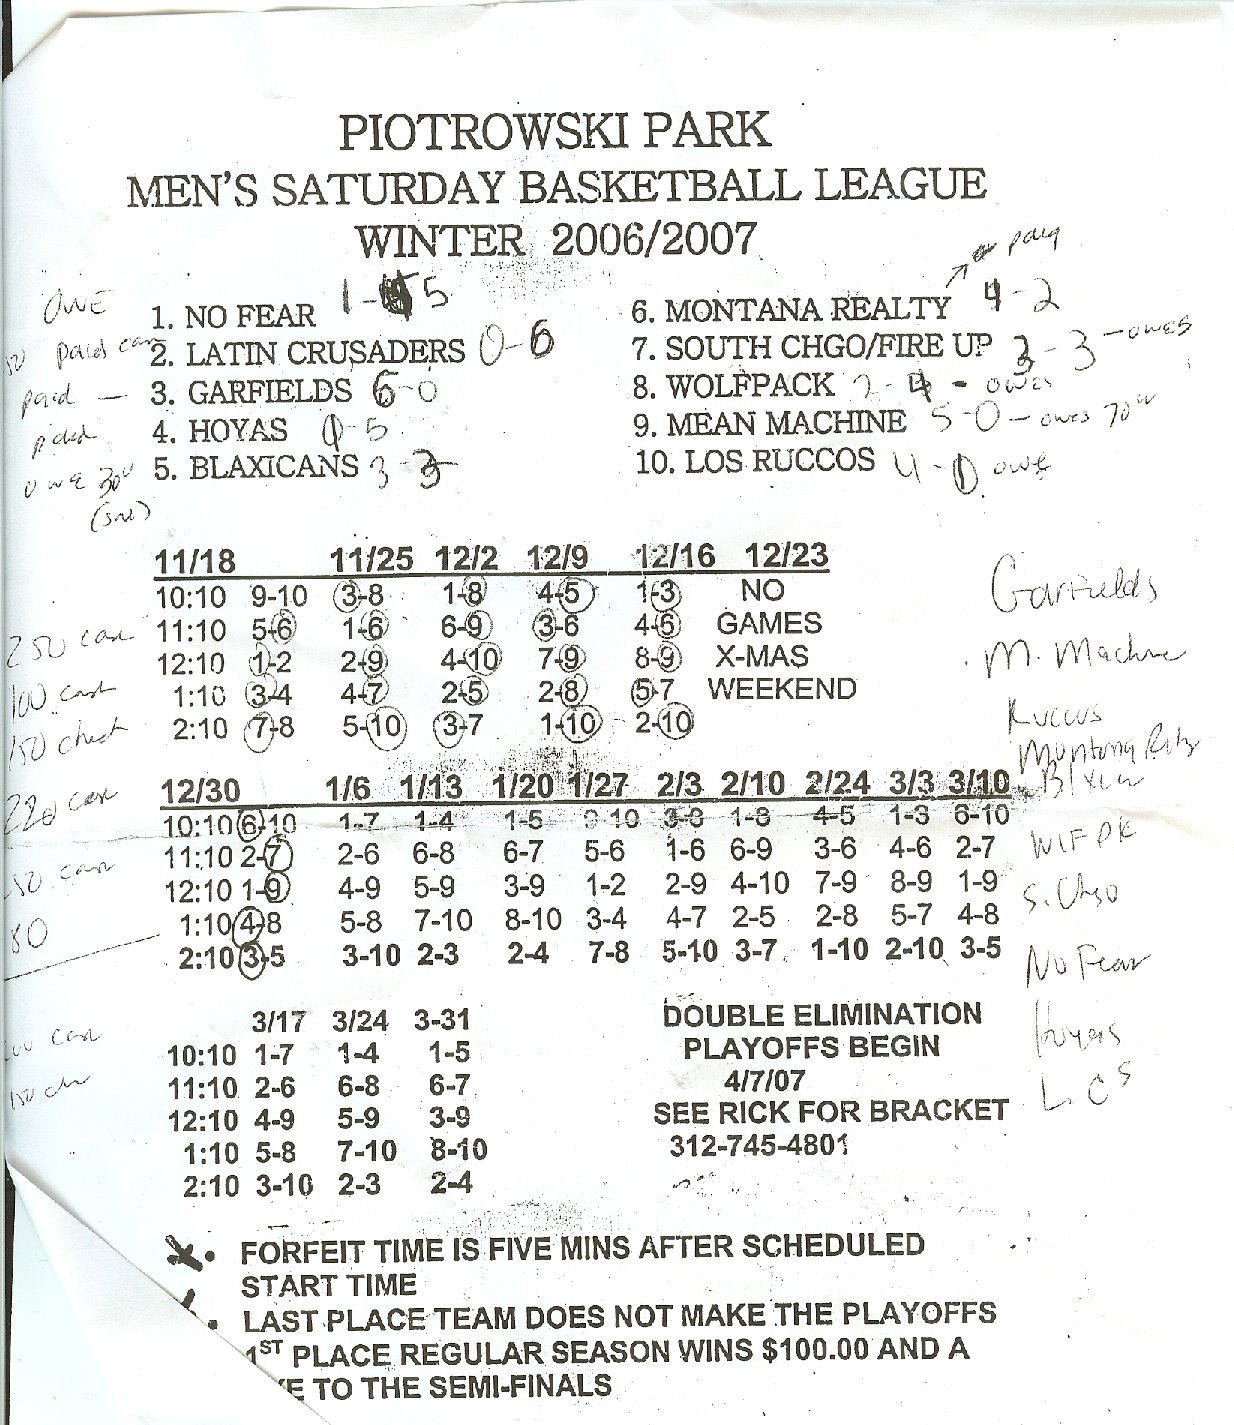 PIOTROWSKI PARK
MEN'S SATURDAY BASKETBALL LEAGUE
WINTER 2006/2007
pay
OWE 1. NO FEAR 1-5 6. MONTANA REALTY 4-2
paid cash 2. LATIN CRUSADERS 0-6 7. SOUTH CHGO/FIRE UP 3-3 - owes
paid - 3. GARFIELDS 6-0 8. WOLFPACK 2-4 - owes
paid 4. HOYAS 1-5 9. MEAN MACHINE 5-0 - owes 70
owe 30 5. BLAXICANS 3-3 10. LOS RUCCOS 4-1 owe
11/18 11/25 12/2 12/9 12/16 12/23
10:10 9-10 3-8 1-8 4-5 1-3 NO
11:10 5-6 1-6 6-9 3-6 4-6 GAMES
12:10 1-2 2-9 4-10 7-9 8-9 X-MAS
1:10 3-4 4-7 2-5 2-8 5-7 WEEKEND
2:10 7-8 5-10 3-7 1-10 2-10
Garfields
M. Machine
Ruccos
Montana Rlty
250 cash
100 cash
150 check
220 cash
12/30 1/6 1/13 1/20 1/27 2/3 2/10 2/24 3/3 3/10
10:10 6-10 1-7 1-4 1-5 9-10 3-8 1-8 4-5 1-3 6-10
11:10 2-7 2-6 6-8 6-7 5-6 1-6 6-9 3-6 4-6 2-7
12:10 1-9 4-9 5-9 3-9 1-2 2-9 4-10 7-9 8-9 1-9
1:10 4-8 5-8 7-10 8-10 3-4 4-7 2-5 2-8 5-7 4-8
2:10 3-5 3-10 2-3 2-4 7-8 5-10 3-7 1-10 2-10 3-5
WLFPK
S. Chgo
No Fear
Hoyas
L. CS
3/17 3/24 3-31
10:10 1-7 1-4 1-5
11:10 2-6 6-8 6-7
12:10 4-9 5-9 3-9
1:10 5-8 7-10 8-10
2:10 3-10 2-3 2-4
DOUBLE ELIMINATION
PLAYOFFS BEGIN
4/7/07
SEE RICK FOR BRACKET
312-745-4801
• FORFEIT TIME IS FIVE MINS AFTER SCHEDULED
START TIME
• LAST PLACE TEAM DOES NOT MAKE THE PLAYOFFS
1ST PLACE REGULAR SEASON WINS $100.00 AND A
E TO THE SEMI-FINALS